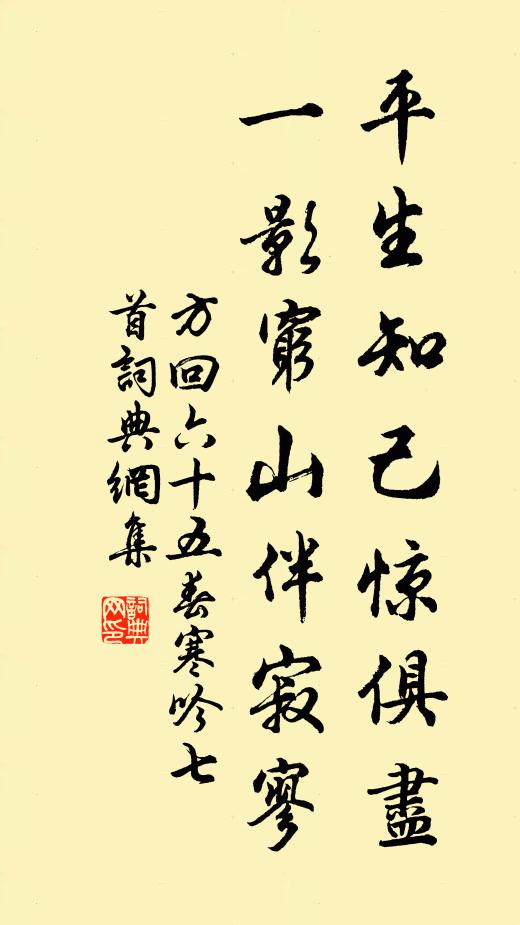 平生知己惊俱盡
一影窮山伴寂寥
方回六十五春寒吟七
首詞典網集
詞典
网印